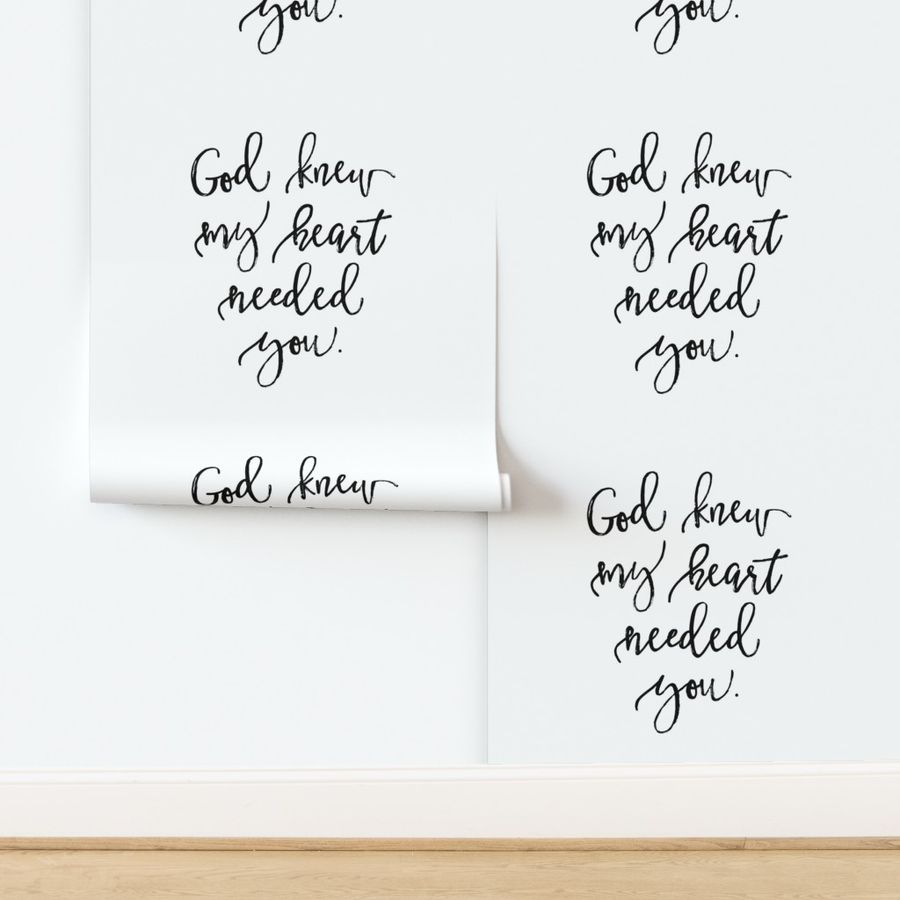 you.
you.
God knew
my heart
needed
you.
God knew
my heart
needed
you.
God knew
God knew
my heart
needed
you.